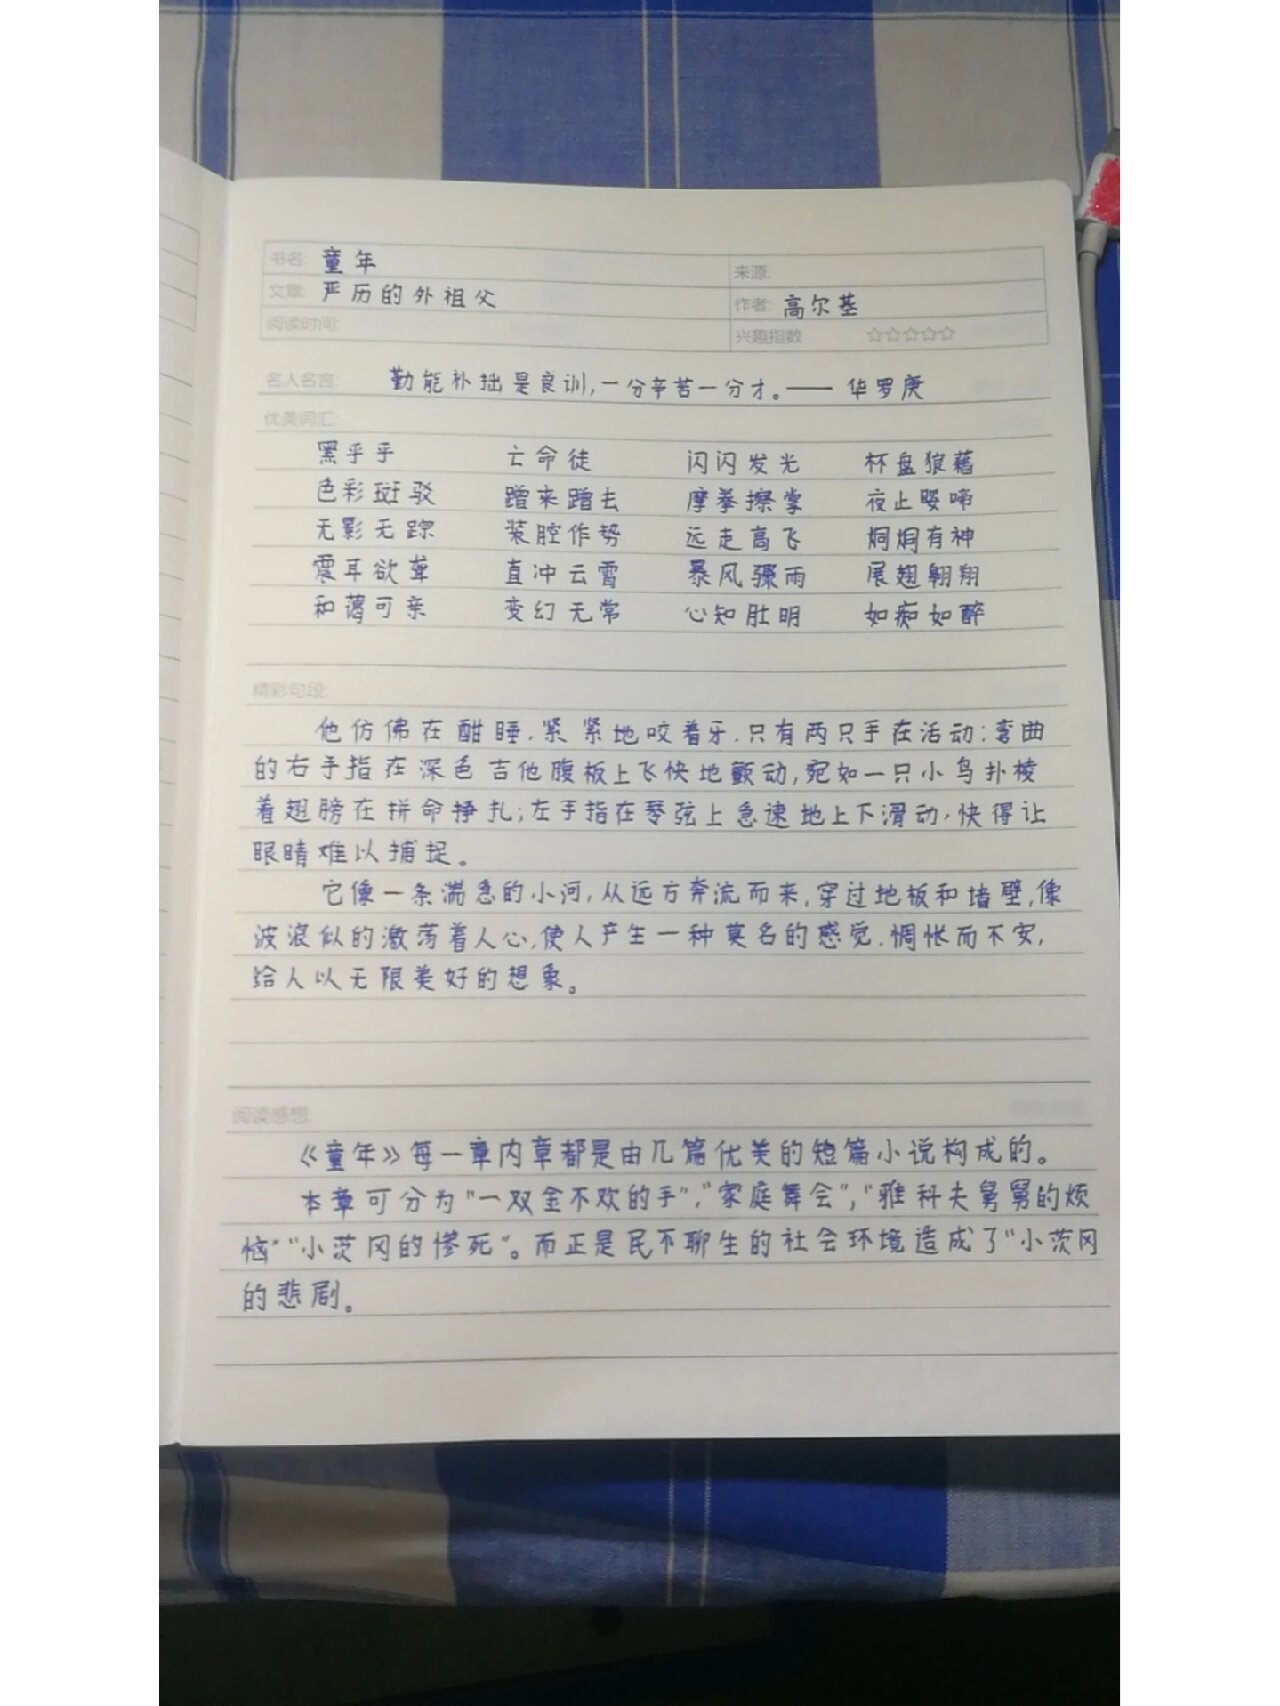 书名: 童年
来源:
文章: 严历的外祖父
作者: 高尔基
阅读时间:
兴趣指数 ☆☆☆☆☆
名人名言: 勤能补拙是良训,一分辛苦一分才。—— 华罗庚
优美词汇:
黑乎乎 亡命徒 闪闪发光 杯盘狼藉
色彩斑驳 蹭来蹭去 摩拳擦掌 夜止婴啼
无影无踪 装腔作势 远走高飞 炯炯有神
震耳欲聋 直冲云霄 暴风骤雨 展翅翱翔
和蔼可亲 变幻无常 心知肚明 如痴如醉
精彩句段:
他仿佛在酣睡,紧紧地咬着牙,只有两只手在活动:弯曲
的右手指在深色吉他腹板上飞快地颤动,宛如一只小鸟扑棱
着翅膀在拼命挣扎;左手指在琴弦上急速地上下滑动,快得让
眼睛难以捕捉。
它像一条湍急的小河,从远方奔流而来,穿过地板和墙壁,像
波浪似的激荡着人心,使人产生一种莫名的感觉,惆怅而不安,
给人以无限美好的想象。
阅读感想:
《童年》每一章内章都是由几篇优美的短篇小说构成的。
本章可分为“一双金不欢的手”,“家庭舞会”,“雅科夫舅舅的烦
恼”“小茨冈的惨死”。而正是民不聊生的社会环境造成了“小茨冈
的悲剧。